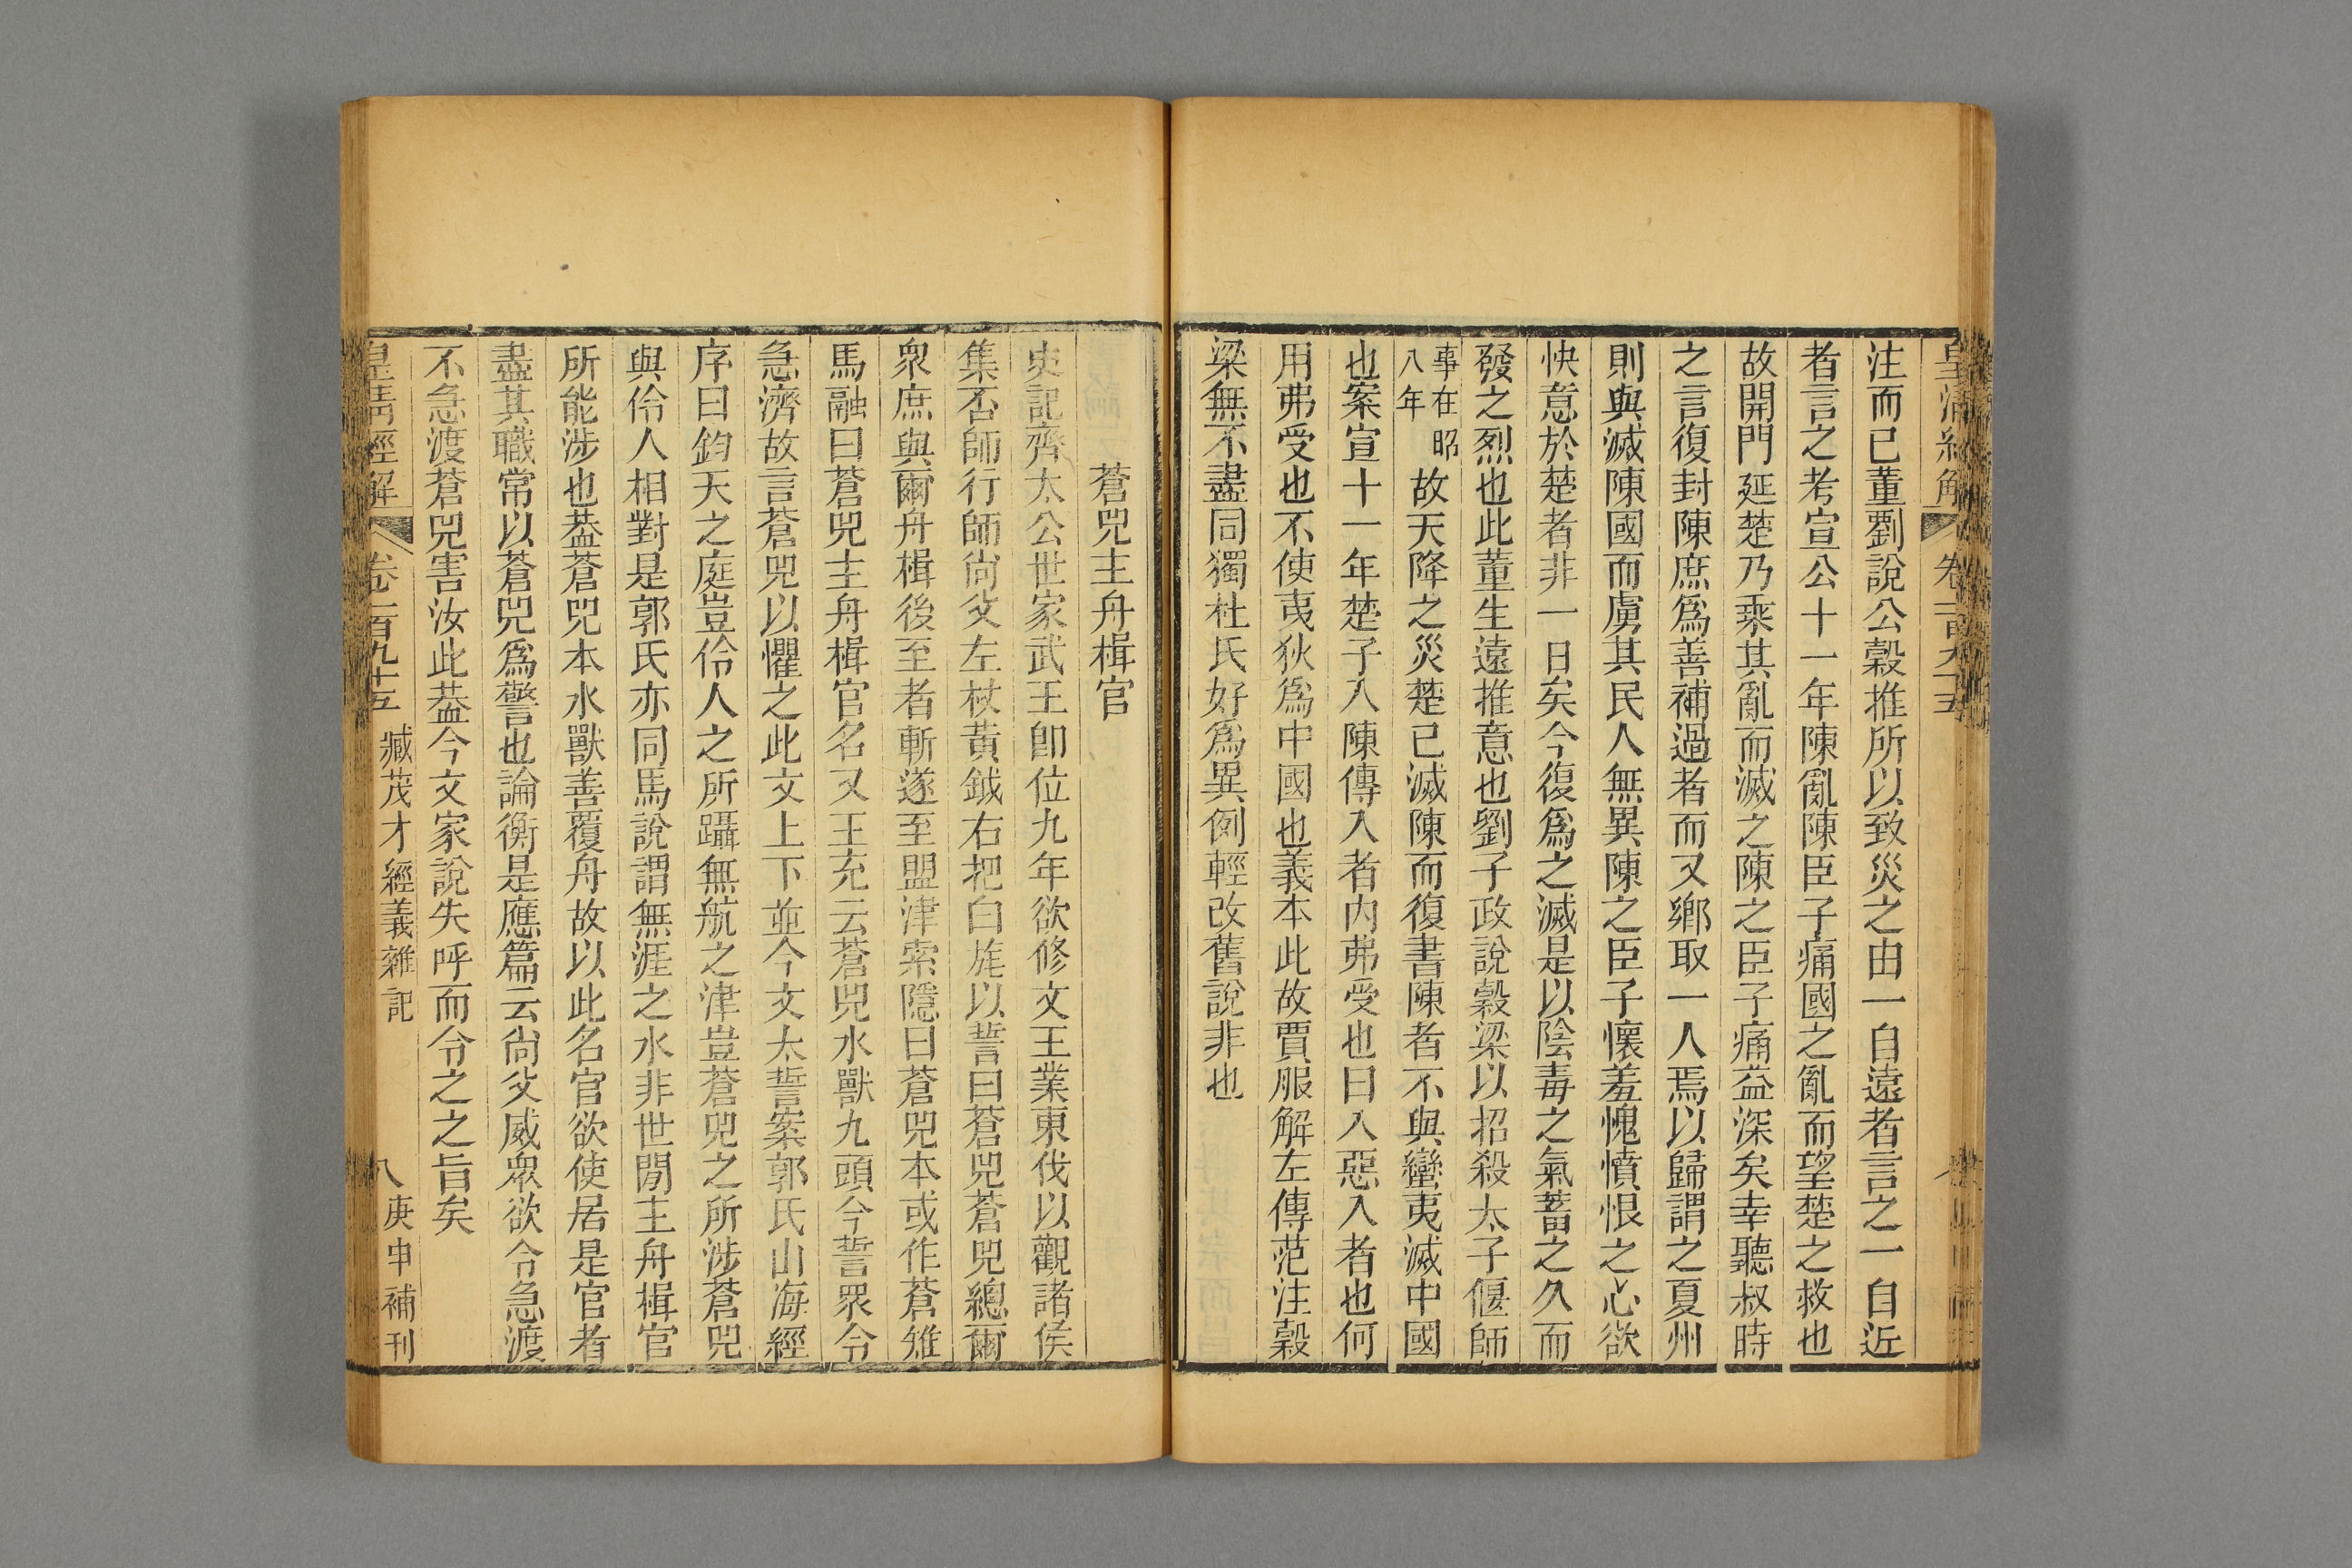 注而已董劉說公穀推所以致災之由一自遠者言之一自近
者言之考宣公十一年陳亂陳臣子痛國之亂而望楚之救也
故開門延楚乃乘其亂而滅之陳之臣子痛益深矣幸聽叔時
之言復封陳庶爲善補過者而又鄉取一人焉以歸謂之夏州
則與滅陳國而虜其民人無異陳之臣子懷羞愧憤恨之心欲
快意於楚者非一日矣今復爲之滅是以陰毒之氣蓄之久而
發之烈也此董生遠推意也劉子政說穀梁以招殺太子偃師
事在昭
八年
故天降之災楚已滅陳而復書陳者不與蠻夷滅中國
也案宣十一年楚子入陳傳入者內弗受也曰入惡入者也何
用弗受也不使夷狄爲中國也義本此故賈服解左傳范注穀
梁無不盡同獨杜氏好爲異例輕改舊說非也
蒼兕主舟楫官
史記齊太公世家武王卽位九年欲修文王業東伐以觀諸侯
集否師行師尙父左杖黃鉞右把白旄以誓曰蒼兕蒼兕總爾
衆庶與爾舟楫後至者斬遂至盟津索隱曰蒼兕本或作蒼雉
馬融曰蒼兕主舟楫官名又王充云蒼兕水獸九頭今誓眾令
急濟故言蒼兕以懼之此文上下並今文太誓案郭氏山海經
序曰鈞天之庭豈伶人之所躡無航之津豈蒼兕之所涉蒼兕
與伶人相對是郭氏亦同馬說謂無涯之水非世閒主舟楫官
所能涉也葢蒼兕本水獸善覆舟故以此名官欲使居是官者
盡其職常以蒼兕爲警也論衡是應篇云尙父威衆欲令急渡
不急渡蒼兕害汝此葢今文家說失呼而令之之旨矣
皇淸經解
卷一百九十五
臧茂才經義雜記
八
庚申補刊